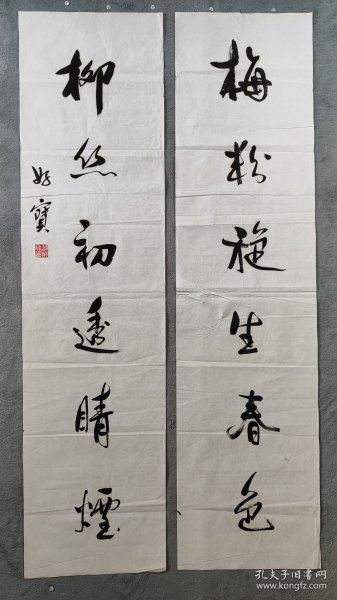 梅粉施生春色
柳丝初透晴煙
好寶
孔夫子旧书网
www.kongfz.com